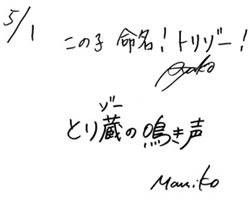 5/1
この子 命名！トリゾー！
Ayako
ゾー
とり蔵の鳴き声
Mariko